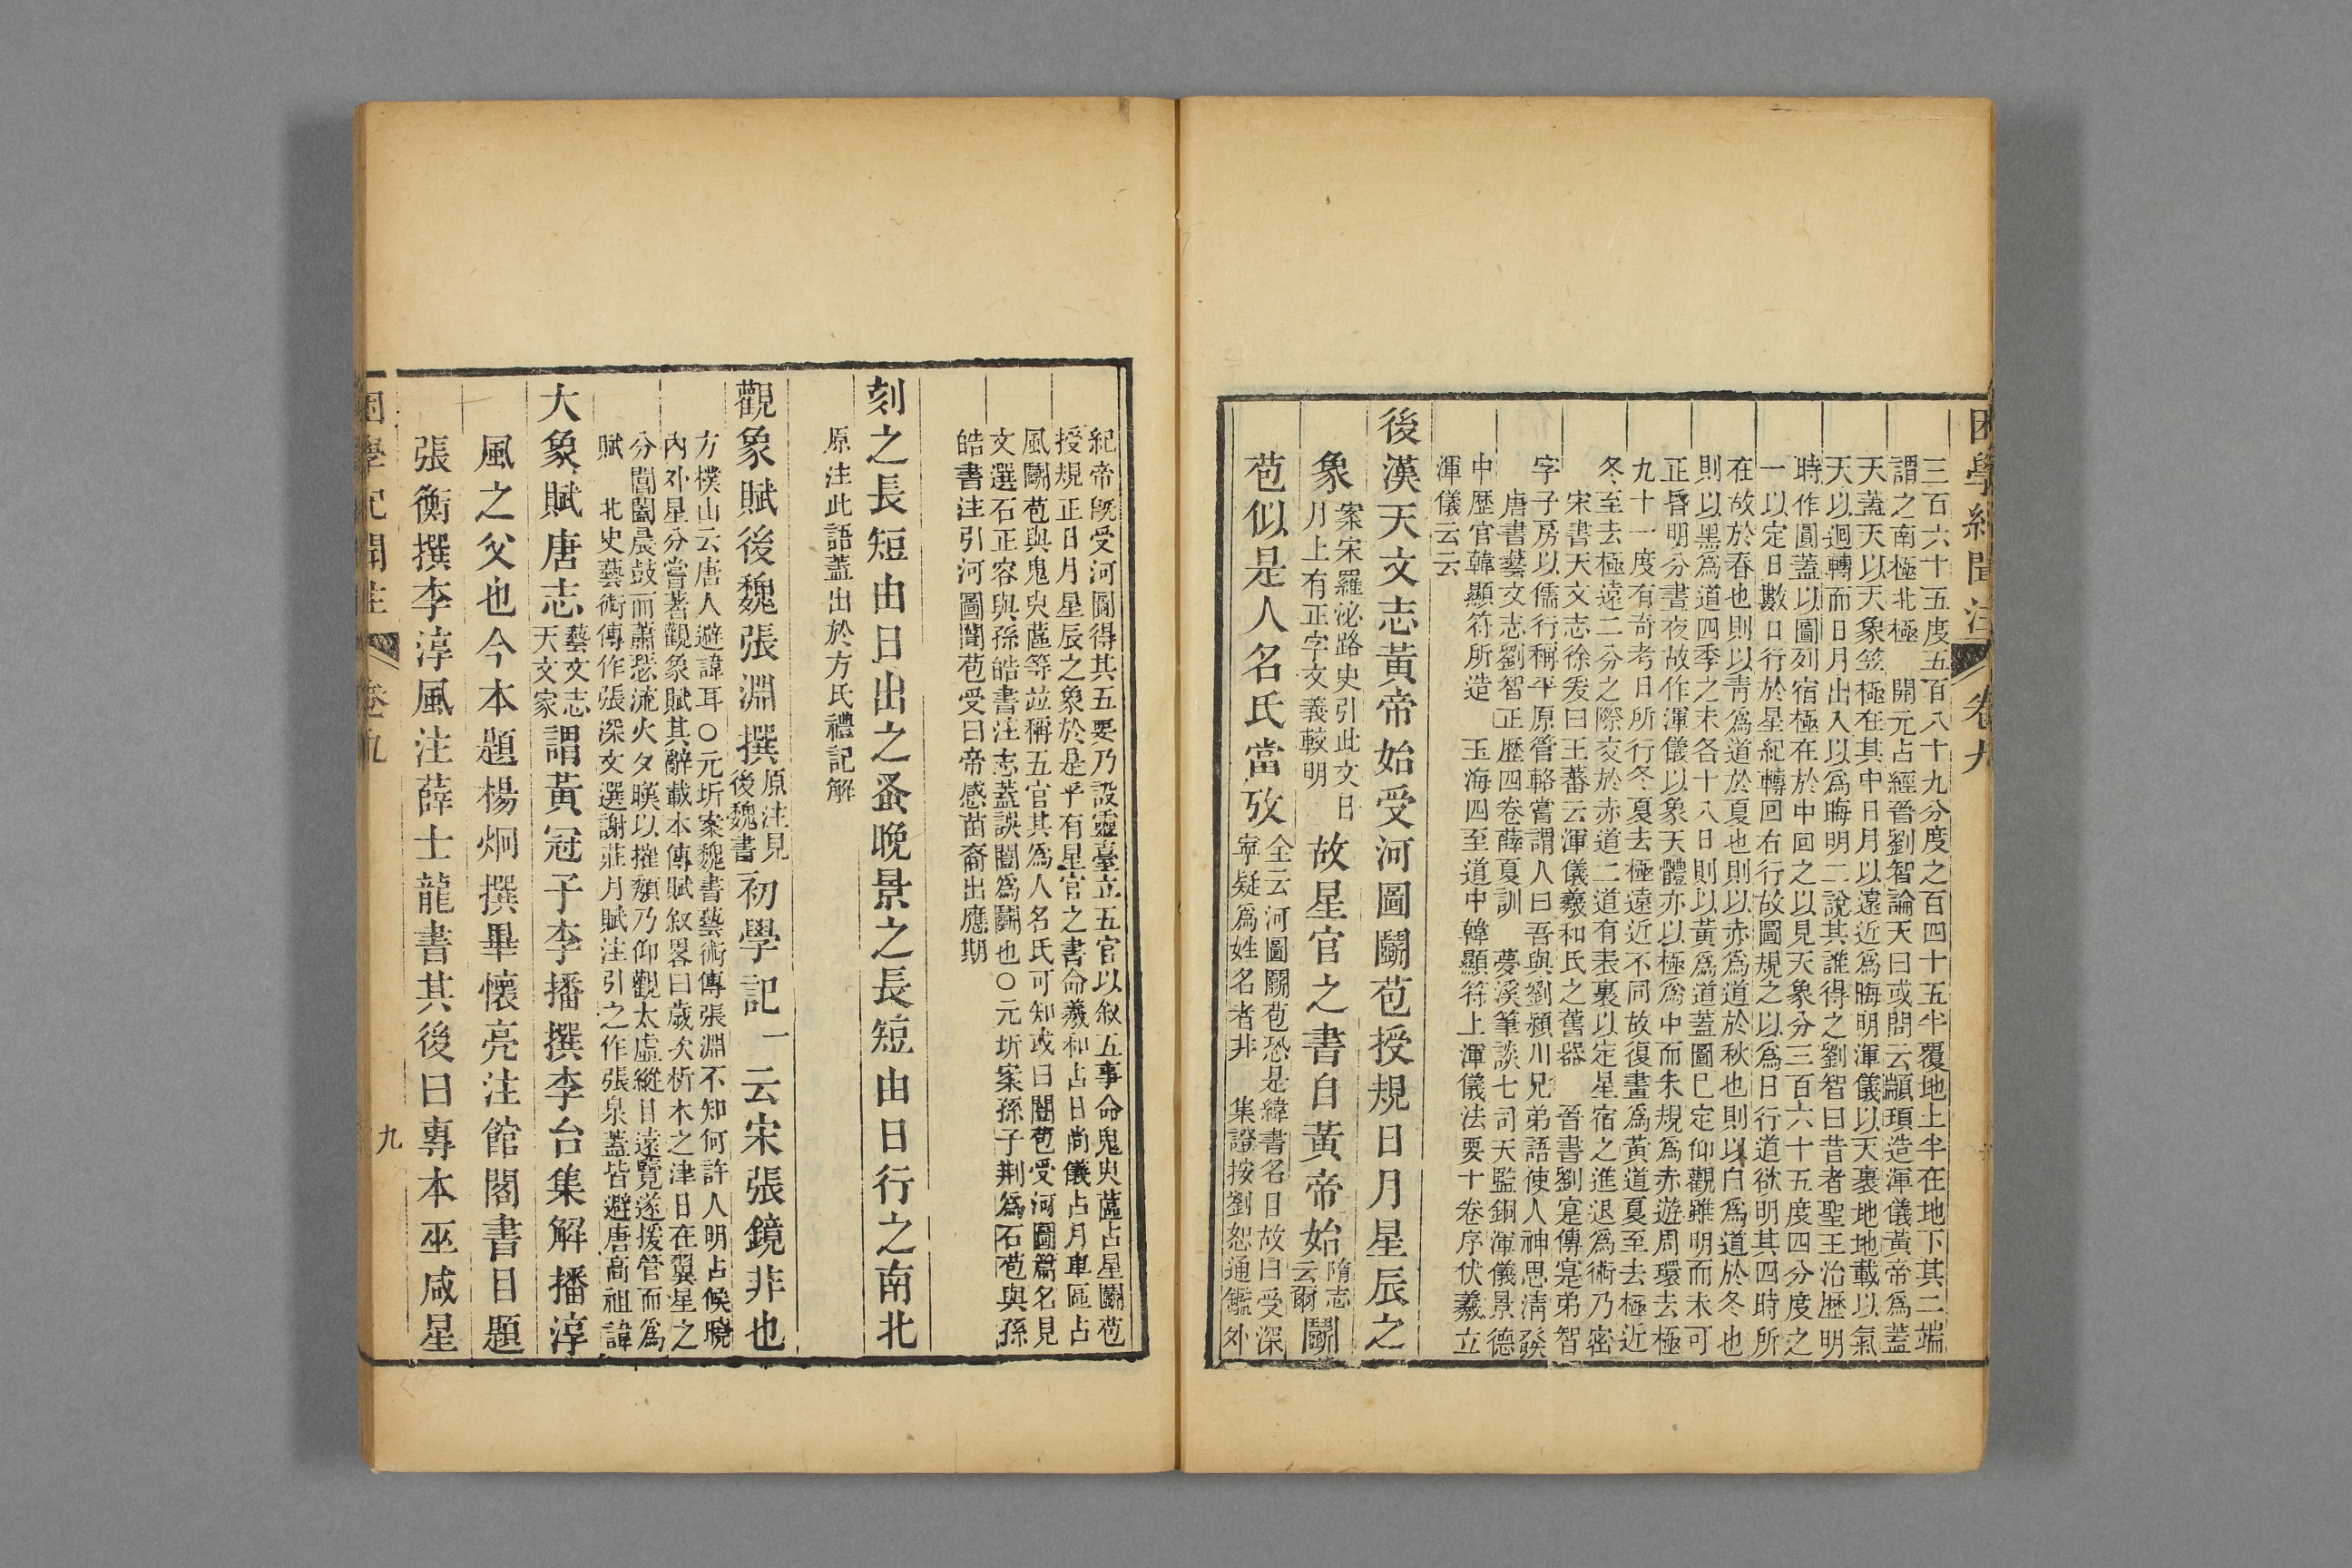 困學紀聞注 卷九
三百六十五度五百八十九分度之百四十五半覆地上半在地下其二端
謂之南極北極 開元占經晉劉智論天曰或問云顓頊造渾儀黃帝爲蓋
天蓋天以天象笠極在其中日月以遠近爲晦明渾儀以天裹地地載以氣
天以迴轉而日月出入以爲晦明二說其誰得之劉智曰昔者聖王治歷明
時作圓蓋以圖列宿極在於中回之以見天象分三百六十五度四分度之
一以定日數日行於星紀轉回右行故圖規之以爲日行道欲明其四時所
在故於春也則以靑爲道於夏也則以赤爲道於秋也則以白爲道於冬也
則以黑爲道四季之末各十八日則以黃爲道蓋圖巳定仰觀雖明而未可
正昏明分晝夜故作渾儀以象天體亦以極爲中而朱規爲赤遊周環去極
九十一度有奇考日所行冬夏去極遠近不同故復畫爲黃道夏至去極近
冬至去極遠二分之際交於赤道二道有表裏以定星宿之進退爲術乃密
宋書天文志徐爰曰王蕃云渾儀羲和氏之舊器 晉書劉寔傳寔弟智
字子房以儒行稱平原管輅嘗謂人曰吾與劉潁川兄弟語使人神思淸發
唐書藝文志劉智正歷四卷薛夏訓 夢溪筆談七司天監銅渾儀景德
中歷官韓顯符所造 玉海四至道中韓顯符上渾儀法要十卷序伏羲立
渾儀云云
後漢天文志黃帝始受河圖鬭苞授規日月星辰之
象案宋羅泌路史引此文日月上有正字文義較明故星官之書自黃帝始隋志云爾鬭
苞似是人名氏當攷全云河圖鬭苞恐是緯書名目故曰受深寧疑爲姓名者非 集證按劉恕通鑑外
紀帝旣受河圖得其五要乃設靈臺立五官以敘五事命鬼臾蓲占星鬭苞
授規正日月星辰之象於是乎有星官之書命羲和占日尚儀占月車區占
風鬭苞與鬼臾蓲等竝稱五官其爲人名氏可知或曰闓苞受河圖篇名見
文選石正容與孫皓書注志蓋誤闓爲鬭也○元圻案孫子荆爲石苞與孫
皓書注引河圖闓苞受曰帝感苗裔出應期
刻之長短由日出之蚤晚景之長短由日行之南北
原注此語蓋出於方氏禮記解
觀象賦後魏張淵撰原注見後魏書初學記一云宋張鏡非也
方樸山云唐人避諱耳○元圻案魏書藝術傳張淵不知何許人明占候曉
內外星分嘗著觀象賦其辭載本傳賦敘畧曰歲次析木之津日在翼星之
分閶闔晨鼓而蕭瑟流火夕暵以摧頹乃仰觀太虛縱目遠覽遂援管而爲
賦 北史藝術傳作張深文選謝莊月賦注引之作張泉蓋皆避唐高祖諱
大象賦唐志藝文志天文家謂黃冠子李播撰李台集解播淳
風之父也今本題楊炯撰畢懷亮注館閣書目題
張衡撰李淳風注薛士龍書其後曰專本巫咸星
困學紀聞注 卷九 九